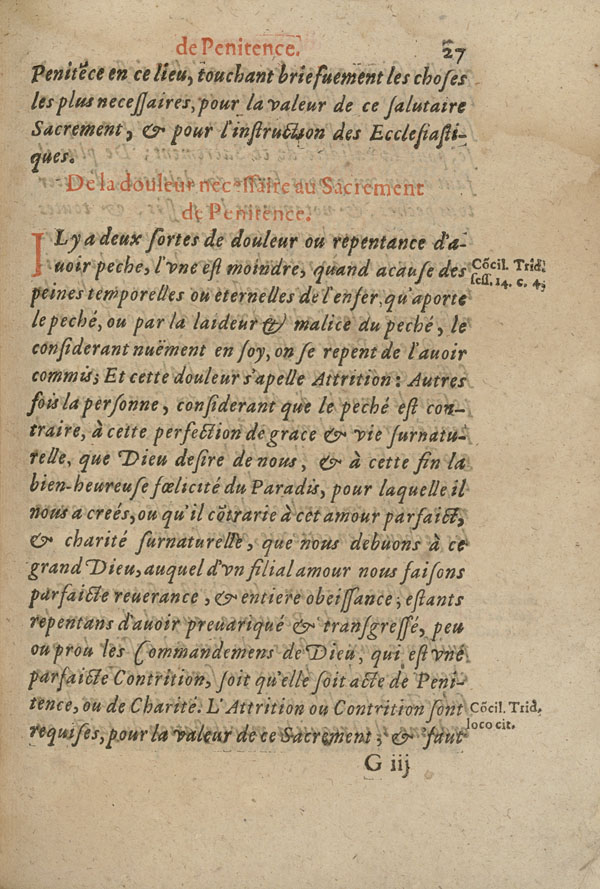 de Penitence. 27
Penitẽce en ce lieu, touchant briefuement les choses
les plus necessaires, pour la valeur de ce salutaire
Sacrement, & pour l'instruction des Ecclesiasti-
ques.
De la douleur necessaire au Sacrement
de Penitence.
IL y a deux sortes de douleur ou repentance d'a-
uoir peche, l'vne est moindre, quand acause des
Cõcil. Trid.
peines temporelles ou eternelles de l'enfer, qu'aporte
sess. 14. c. 4;
le peché, ou par la laideur & malice du peché, le
considerant nuëment en soy, on se repent de l'auoir
commis; Et cette douleur s'apelle Attrition: Autres
fois la personne, considerant que le peché est con-
traire, à cette perfection de grace & vie surnatu-
relle, que Dieu desire de nous, & à cette fin la
bien-heureuse fœlicité du Paradis, pour laquelle il
nous a creés, ou qu'il cõtrarie à cet amour parfaict,
& charité surnaturelle, que nous debuons à ce
grand Dieu, auquel d'vn filial amour nous faisons
parfaicte reuerance, & entiere obeissance; estants
repentans d'auoir preuariqué & transgressé, peu
ou prou les Commandemens de Dieu, qui est vne
parfaicte Contrition, soit qu'elle soit acte de Peni-
tence, ou de Charité. L'Attrition ou Contrition sont
Cõcil. Trid.
requises, pour la valeur de ce Sacrement; & faut
loco cit.
G iij